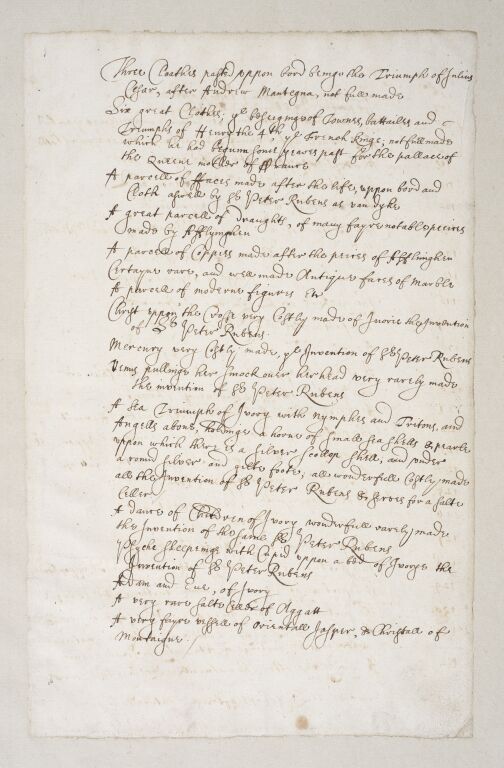 Three Cloathes pasted vppon bord beinge the Triumph of Julius
Cesar, after Andrew Mantegna, not full made
Six great Clothes, ye beseiginge of Townes, battailes and
Triumphs of Henry the 4th ye French Kinge, not full made
which he had begunn some yeares past for the pallace of
the Queene mother of Fraunce
A parcell of ffaces made after the life, vppon bord and
Cloth aswell by Sr Peter Rubens as van dyke
A great parcell of Draughts, of many fayre notable peeces
made by
A parcell of Coppies made after the peeces of
Certayne rare, and well made Antique faces of Marble
A parcell of moderne figures &c
Christ vppon the Crosse very Costly made of Ivorie the Invention
of Sr Peter Rubens.
Mercury very Costly made, ye Invention of Sr Peter Rubens
Venus pullinge her smock over her head very rarely made
the invention of Sr Peter Rubens
A Sea Triumph of Ivory with nymphes and Tritons, and
Angells above, houldinge a horne of small sea shells & pearle
vppon which there is a Silver Scollop Shell, and vnder
a round Silver and guilt foote, all wonderfull Costly made
all the Invention of Sr Peter Rubens & serves for a salte
Celler
A dance of Children of Ivory wonderfull rarely made
the Invention of the same Sr Peter Rubens
Psyche sleepinge with Cupid vppon a bed of Ivorye the
Invention of Sr Peter Rubens
Adam and Eve, of Ivory
A very rare salte Celler of Aggatt
A very fayre vessell of orientall Jasper, & Christall of
Montaigne.